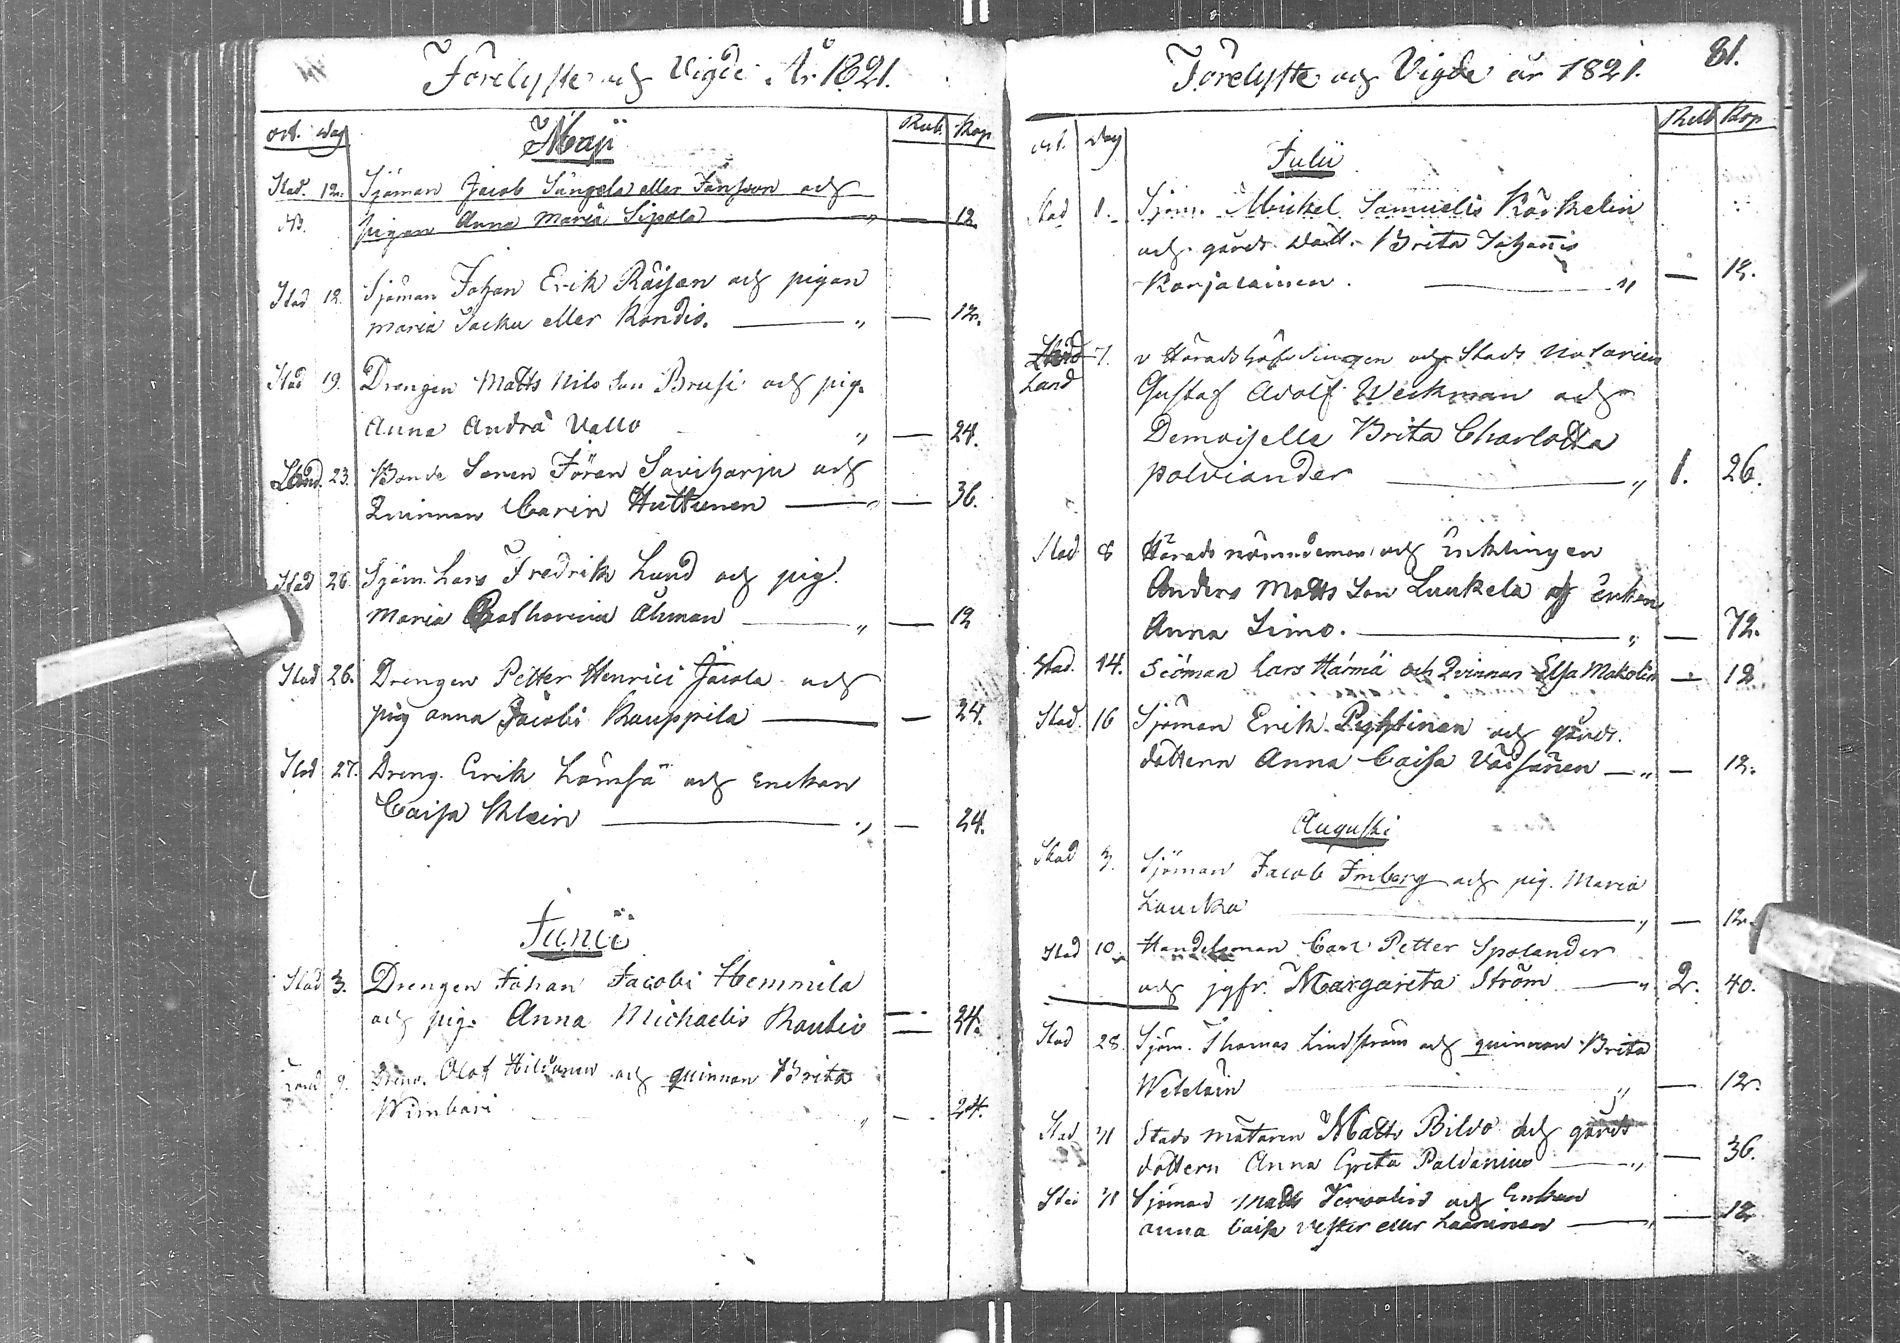 Förelyste och Vigde År 1821.
ort. dag Rub. Kop.
Maji
Stad. 12. Sjöman Jacob Sångela eller Jansson och
NB. pigan Anna Maria Sipola " — 12
Stad 12. Sjöman Johan Erik Räisän och pigan
Maria Jacku eller Kandis. — " — 12.
Stad 19. Drengen Matts Nils Son Brusi och pig.
Anna Andrä Vallo " — 24.
Land. 23. Bonde Sonen Jöran Saviharju och
Qvinnan Carin Huttunen — " — 36.
Stad 26. Sjöm. Lars Fredrik Lund och pig.
Maria Catharina Åhman — " — 12
Stad 26. Drengen Petter Henrici Jacola och
pig Anna Jacobi Kauppila — — 24.
Stad 27. Dreng. Erik Lämsä och Enckan
Caisa Klein — " — 24.
Junii
Stad 3. Drengen Johan Jacobi Hemmila
och pig. Anna Michaelis Rautio — 24.
Land 9. Dren. Olof Hildunen och quinnan Brita
Wimbari " — 24.
Förelyste och Vigde år 1821. 81.
ort. Dag Rub Kop
Julii
Stad 1. Sjöm. Mickel Samuelis Kärkelin
och gårds dott. Brita Johannis
Karjalainen. — " — 12.
Stad 7. v Häradshöfdingen och Stads Notarien
Land Gustaf Adolf Weckman och
Demoiselle Brita Charlotta
Polviander — " 1. 26.
Stad 8 Härads nämndeman och Enklingen
Anders Matts Son Luukela och Enkan
Anna Simo. — " — 72.
Stad. 14. Sjöman Lars Härmä och Qvinnan Elsa Makolin — 12
Stad. 16 Sjöman Erik Pyhtinen och gårds
dottern Anna Caisa Väisänen — " — 12.
Augusti
Stad 3. Sjöman Jacob Imberg och pig. Maria
Laucka — " — 12.
Stad 10. Handelsman Carl Petter Spolander
och jgfr. Margareta Ström — " 2. 40.
Stad 28. Sjöm. Thomas Lindström och quinnan Brita
Wetelain " — 12.
Stad 31 Stads mätaren Matts Bildo och gårds
dottern Anna Greta Paldanius — " — 36.
Stad 31 Sjöman Matts och Enkan
Anna Caisa Vester eller Laaninen — " — 12